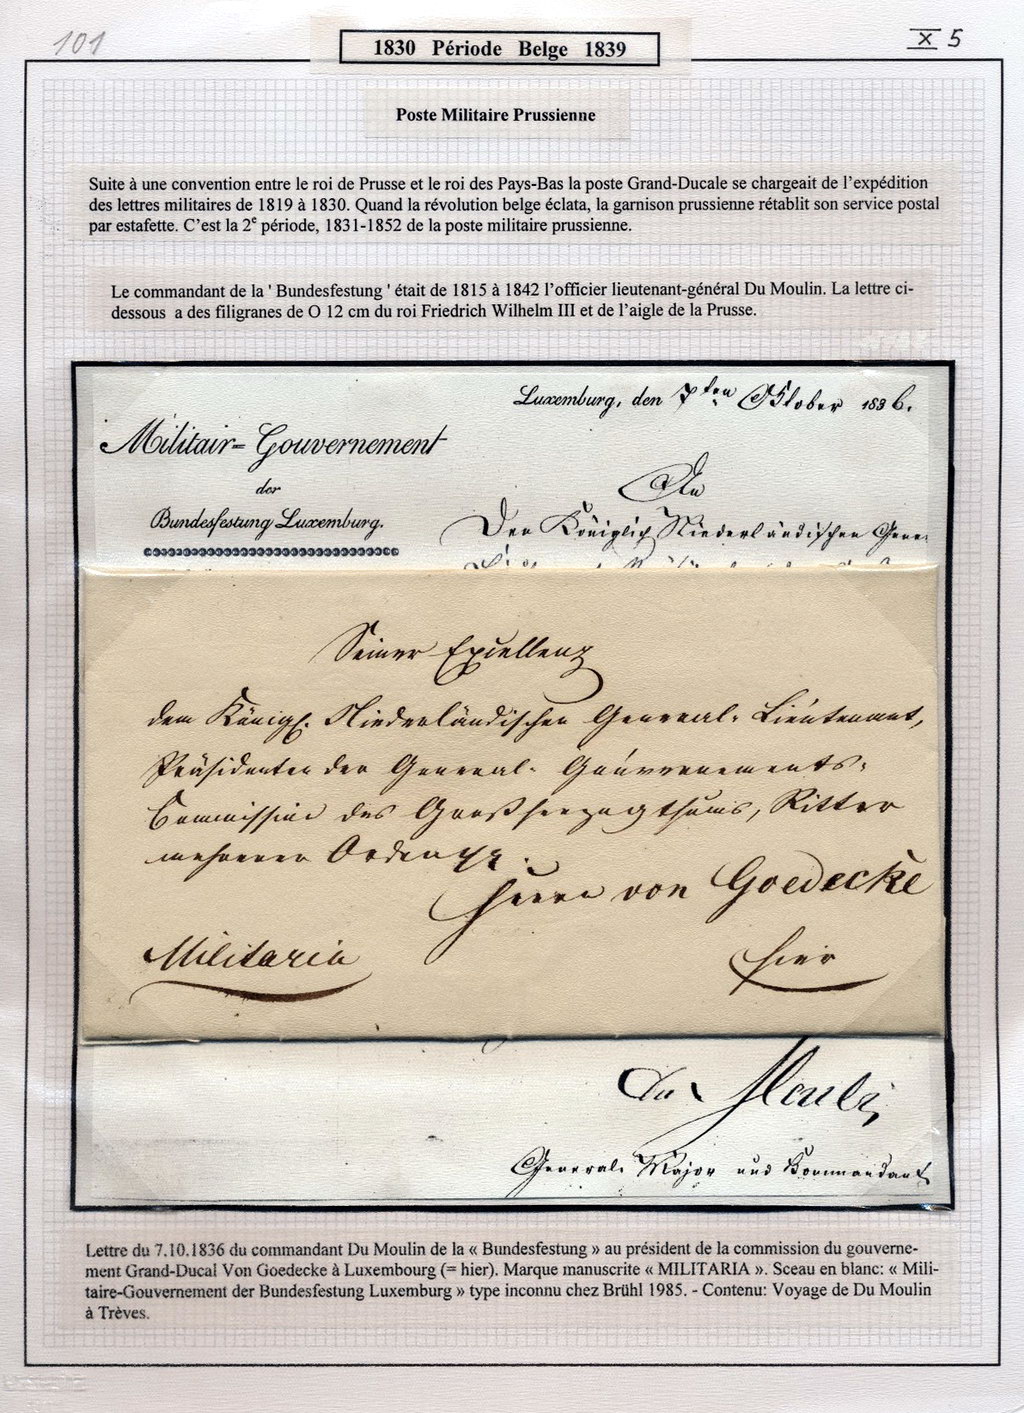 101
X 5
1830 Période Belge 1839
Poste Militaire Prussienne
Suite à une convention entre le roi de Prusse et le roi des Pays-Bas la poste Grand-Ducale se chargeait de l'expédition
des lettres militaires de 1819 à 1830. Quand la révolution belge éclata, la garnison prussienne rétablit son service postal
par estafette. C'est la 2e période, 1831-1852 de la poste militaire prussienne.
Le commandant de la ' Bundesfestung ' était de 1815 à 1842 l'officier lieutenant-général Du Moulin. La lettre ci-
dessous a des filigranes de O 12 cm du roi Friedrich Wilhelm III et de l'aigle de la Prusse.
Luxemburg, den 7ten Oktober 1836.
Militair-Gouvernement
der
Bundesfestung Luxemburg.
An
Den Königlich Niederländischen Gene
Seiner Excellenz
dem Königl. Niederländischen General-Lieutenant,
Präsidenten der General-Gouvernements-
Commission des Großherzogthums, Ritter
mehrerer Orden
Herrn von Goedecke
Militaria
hier
Du Moulin
General-Major und Kommandant
Lettre du 7.10.1836 du commandant Du Moulin de la « Bundesfestung » au président de la commission du gouverne-
ment Grand-Ducal Von Goedecke à Luxembourg (= hier). Marque manuscrite « MILITARIA ». Sceau en blanc: « Mili-
taire-Gouvernement der Bundesfestung Luxemburg » type inconnu chez Brühl 1985. - Contenu: Voyage de Du Moulin
à Trèves.